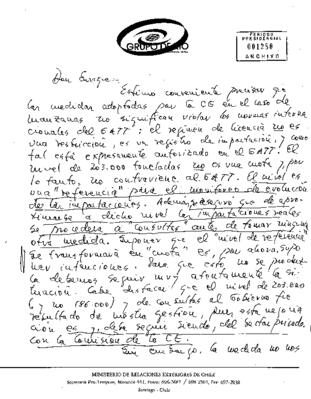 GRUPO DE RIO
PERIODO
PRESIDENCIAL
001250
ARCHIVO
Don Enrique:
Estimo conveniente precisar que
las medidas adoptadas por la CE en el caso de
manzanas no significan violar las normas interna
cionales del GATT: el régimen de licencia no es
una restricción, es un registro de importación, y como
tal está expresamente autorizado en el GATT. El
nivel de 203.000 toneladas no es una cuota y, por
lo tanto, no contraviene al GATT. El nivel es
una "referencia" para el monitoreo de evolución
de las importaciones. Además, aseguró que de apro-
ximarse a dicho nivel las importaciones reales
se procederá a consultas antes de tomar ninguna
otra medida. Suponer que el "nivel de referencia"
se transformará en cuota es, por ahora, supo-
ner intenciones. Para que esto no se produzca
debemos seguir muy atentamente la si-
tuación. Cabe destacar que el nivel de 203.000
(y no 186.000) y de consultas al Gobierno fue
resultado de nuestra gestión, pues esta negocia
ción es y debe seguir siendo, del sector privado
con la Comisión de la CE.
Sin embargo, la medida no nos
MINISTERIO DE RELACIONES EXTERIORES DE CHILE
Santiago - Chile